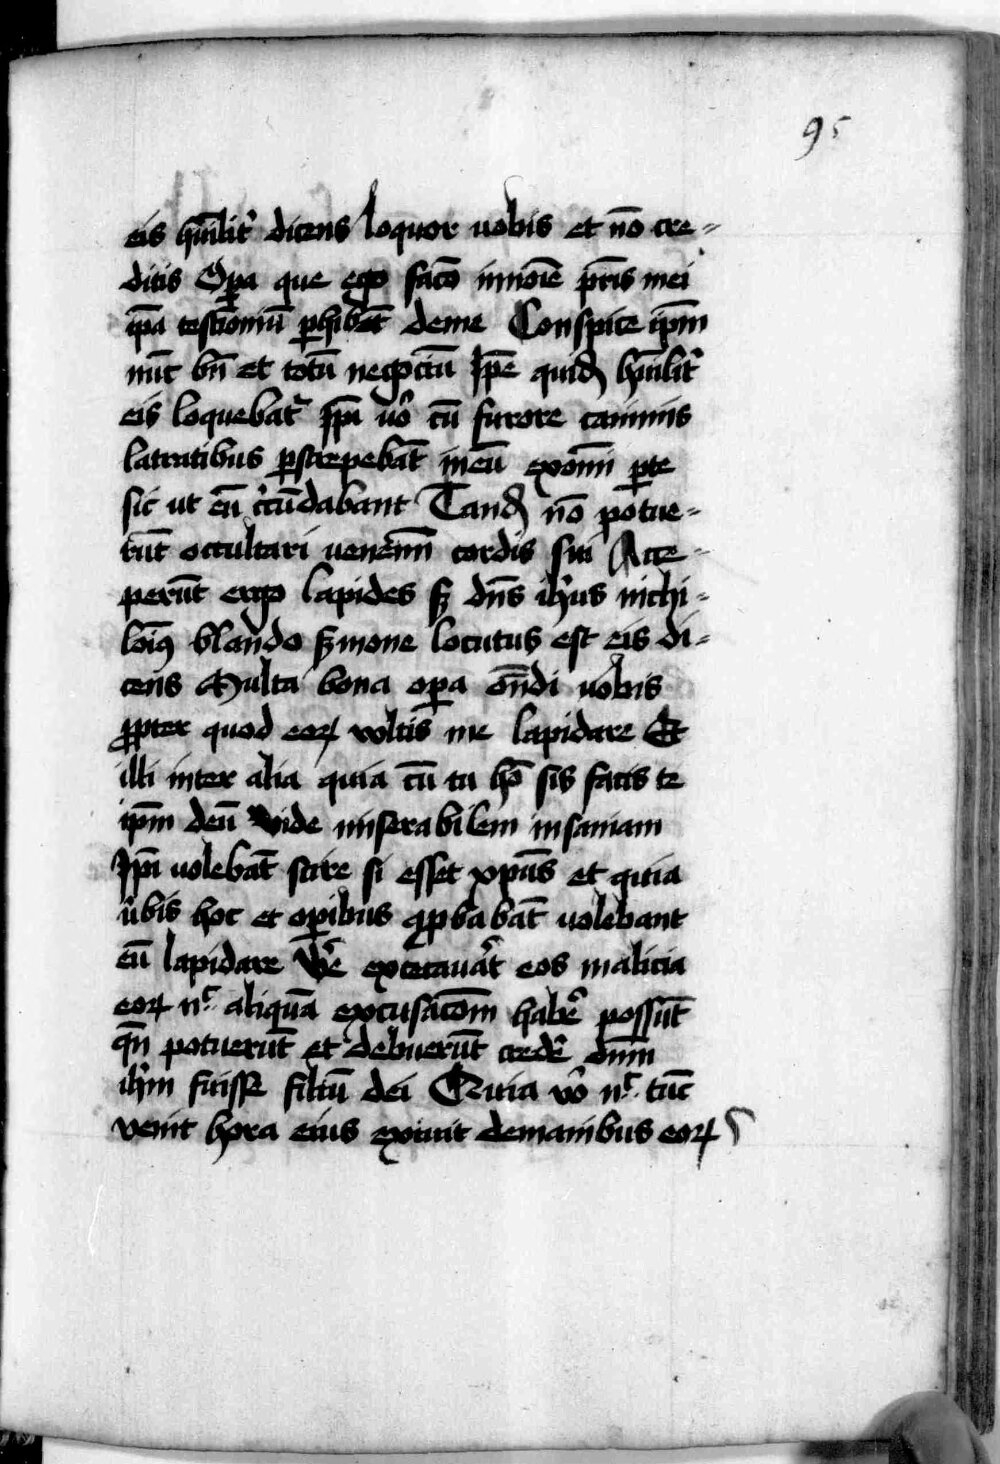 95
eis hūilit̉ dicens loquor uobis et nō cre-
ditis Oꝑa que ego facō innoīe pr̄is mei
ip̄a testīoniū ꝑhibēt deme Conspice ip̄m
nūc bn̄ et totū negociū Ip̄e quid hūilit̉
eis loquebat̉ Ip̄i uo᷒ cū furore caninis
latratibus ꝑstrepebāt ineū exomī ꝑte
sic ut eū c̉cūdabant Tand nō potue-
rūt occultari uenenū cordis sui Acce-
perūt ergo lapides ſꝫ dn̄s ih̄us nichi-
loīꝰ blando ẜmone locutus est eis di-
cens Multa bona oꝑa on̄di uobis
ꝓpter quod eoꝝ voltis me lapidare Et
illi inter alia quia cū tu hō sis facis te
ip̄m deū Vide miserabilem insaniam
Ip̄i uolebāt scire si esset xp̄us et quia
ūbis hoc et oꝑibus ꝓbabāt volebant
eū lapidare Ve᷒ excecauāt̉ eos malicia
eoꝝ nᶜ aliquā excusacōm habe᷒ possūt
qn̄ potuerūt et debuerūt crede᷒ dnm̄
ih̄m fuisse filiū dei Quia vo᷒ nᶜ tūc
venit hora eius exiuit demanibus eoꝝ